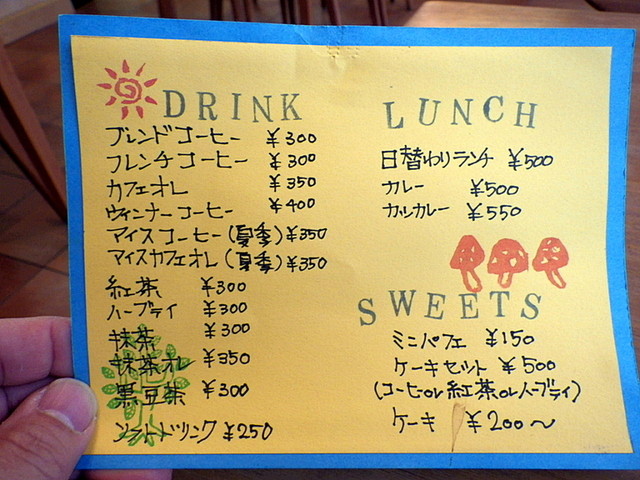 DRINK
ブレンドコーヒー ¥300
フレンチコーヒー ¥300
カフェオレ ¥350
ウィンナーコーヒー ¥400
アイスコーヒー(夏季)¥350
アイスカフェオレ(夏季)¥350
紅茶 ¥300
ハーブティ ¥300
抹茶 ¥300
抹茶オレ ¥350
黒豆茶 ¥300
ソフトドリンク ¥250
LUNCH
日替わりランチ ¥500
カレー ¥500
カツカレー ¥550
SWEETS
ミニパフェ ¥150
ケーキセット ¥500
(コーヒーor紅茶orハーブティ)
ケーキ ¥200〜